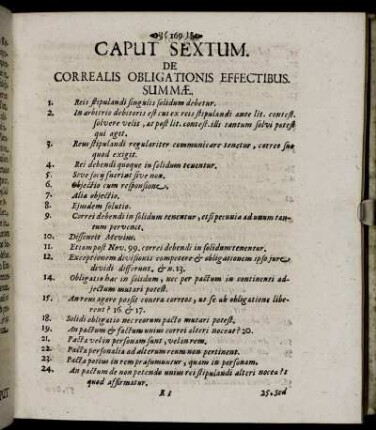 )( 169 )(
CAPUT SEXTUM.
DE
CORREALIS OBLIGATIONIS EFFECTIBUS.
SUMMÆ.
1. Reis stipulandi singulis solidum debetur.
2. In arbitrio debitoris est cui ex reis stipulandi ante lit. contest.
solvere velit, at post lit. contest. illi tantum solvi potest
qui aget.
3. Reus stipulandi regulariter communicare tenetur, correo suo
quod exigit.
4. Rei debendi quoque in solidum tenentur.
5. Sive socij fuerint sive non.
6. Objectio cum responsione.
7. Alia objectio.
8. Ejusdem solutio.
9. Correi debendi in solidum tenentur, etsi pecunia ad unum tan-
tum pervenit.
10. Dissentit Mevius.
11. Etiam post Nov. 99. correi debendi in solidum tenentur.
12. Exceptionem divisionis competere & obligationem ipso jure
dividi differunt, & n. 13.
14. Obligatio hæc in solidum, nec per pactum in continenti ad-
jectum mutari potest.
15. An reus agere possit contra correos, ut se ab obligatione libe-
rent? 16. & 17.
18. Solidi obligatio necreorum pacto mutari potest.
19. An pactum & factum unius correi alteri noceat? 20.
21. Pacta vel in personam sunt, vel in rem.
22. Pacta personalia ad alterum reum non pertinent.
23. Pacta potius in rem præsumuntur, quam in personam.
24. An pactum de non petendo unius rei stipulandi alteri noceat?
quod affirmatur.
R I 25. Sed